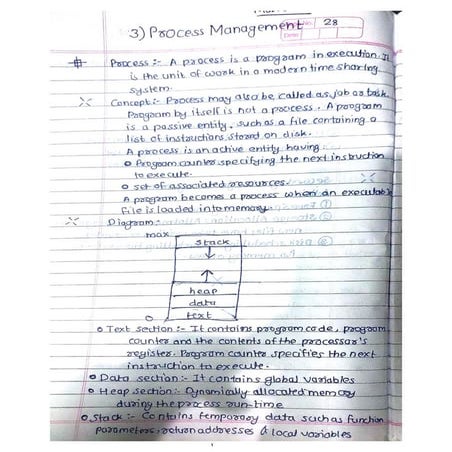 3) Process Management
No. 28
Date
Process :- A process is a program in execution. It
is the unit of work in a modern time sharing
system.
Concept :- Process may also be called as job or task.
Program by itself is not a process. A program
is a passive entity, such as a file containing a
list of instructions stored on disk.
A process is an active entity, having
Program counter specifying the next instruction
to execute.
set of associated resources.
A program becomes a process when an executable
file is loaded into memory.
Diagram:-
max
stack
heap
data
text
o
Text section :- It contains program code, program
counter and the contents of the processor's
register. Program counter specifies the next
instruction to execute.
Data section :- It contains global variables
Heap section :- Dynamically allocated memory
during the process run-time
Stack :- Contains temporary data such as function
parameters, return addresses & local variables